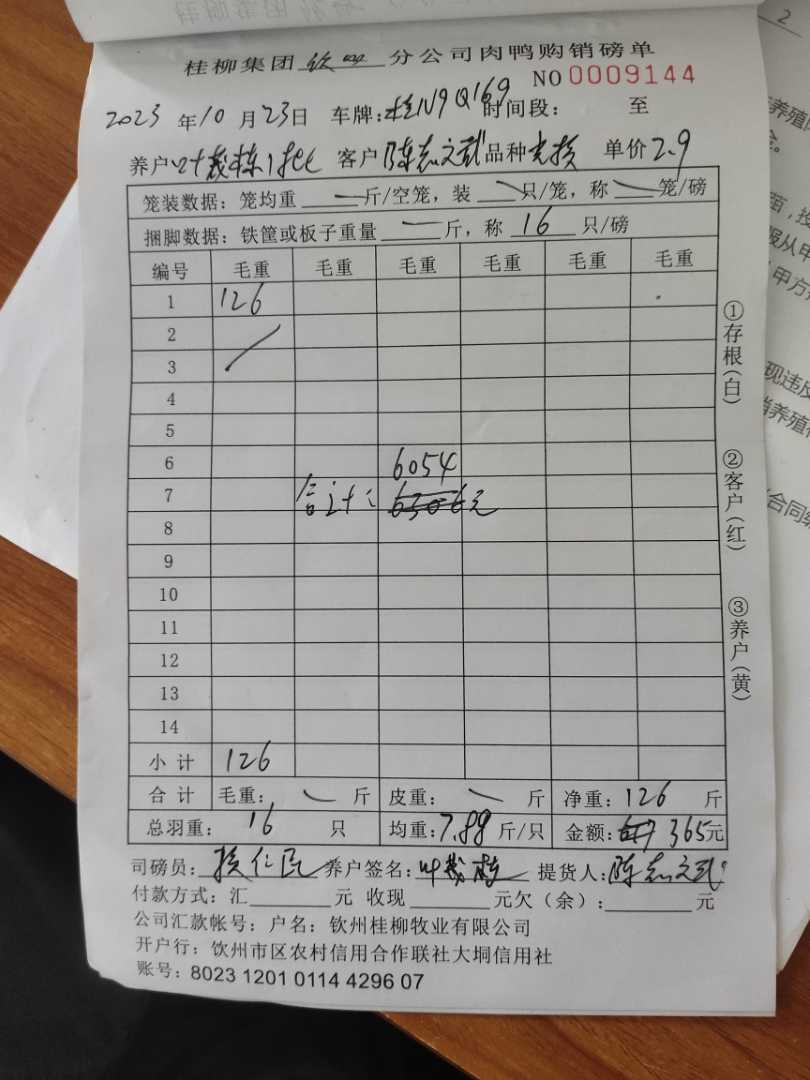 桂柳集团 钦州 分公司肉鸭购销磅单
NO 0009144
2023 年 10 月 23 日 车牌:桂N9Q169 时间段: 至
养户 叶茂栋 客户 陈志文武 品种 单价 2.9
笼装数据: 笼均重 一 斤/空笼, 装 只/笼, 称 笼/磅
捆脚数据: 铁筐或板子重量 一 斤, 称 16 只/磅
编号 毛重 毛重 毛重 毛重 毛重 毛重
1 126
2
3
4
5
6 6054
7 合计: 元
8
9
10
11
12
13
14
小 计 126
合 计 毛重: 斤 皮重: 斤 净重: 126 斤
总羽重: 16 只 均重: 7.88 斤/只 金额: 365元
司磅员: 养户签名: 叶茂栋 提货人: 陈志文武
付款方式: 汇 元 收现 元欠(余): 元
公司汇款帐号: 户名: 钦州桂柳牧业有限公司
开户行: 饮州市区农村信用合作联社大垌信用社
账号: 8023 1201 0114 4296 07
①存根(白)
②客户(红)
③养户(黄)
2
养殖
苗,投
服从甲
甲方
现违反
合同